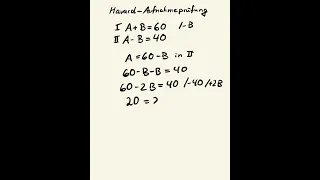 Havard-Aufnahmeprüfung
I A+B=60 /-B
II A-B=40
A=60-B in II
60-B-B=40
60-2B=40 /-40/+2B
20=2